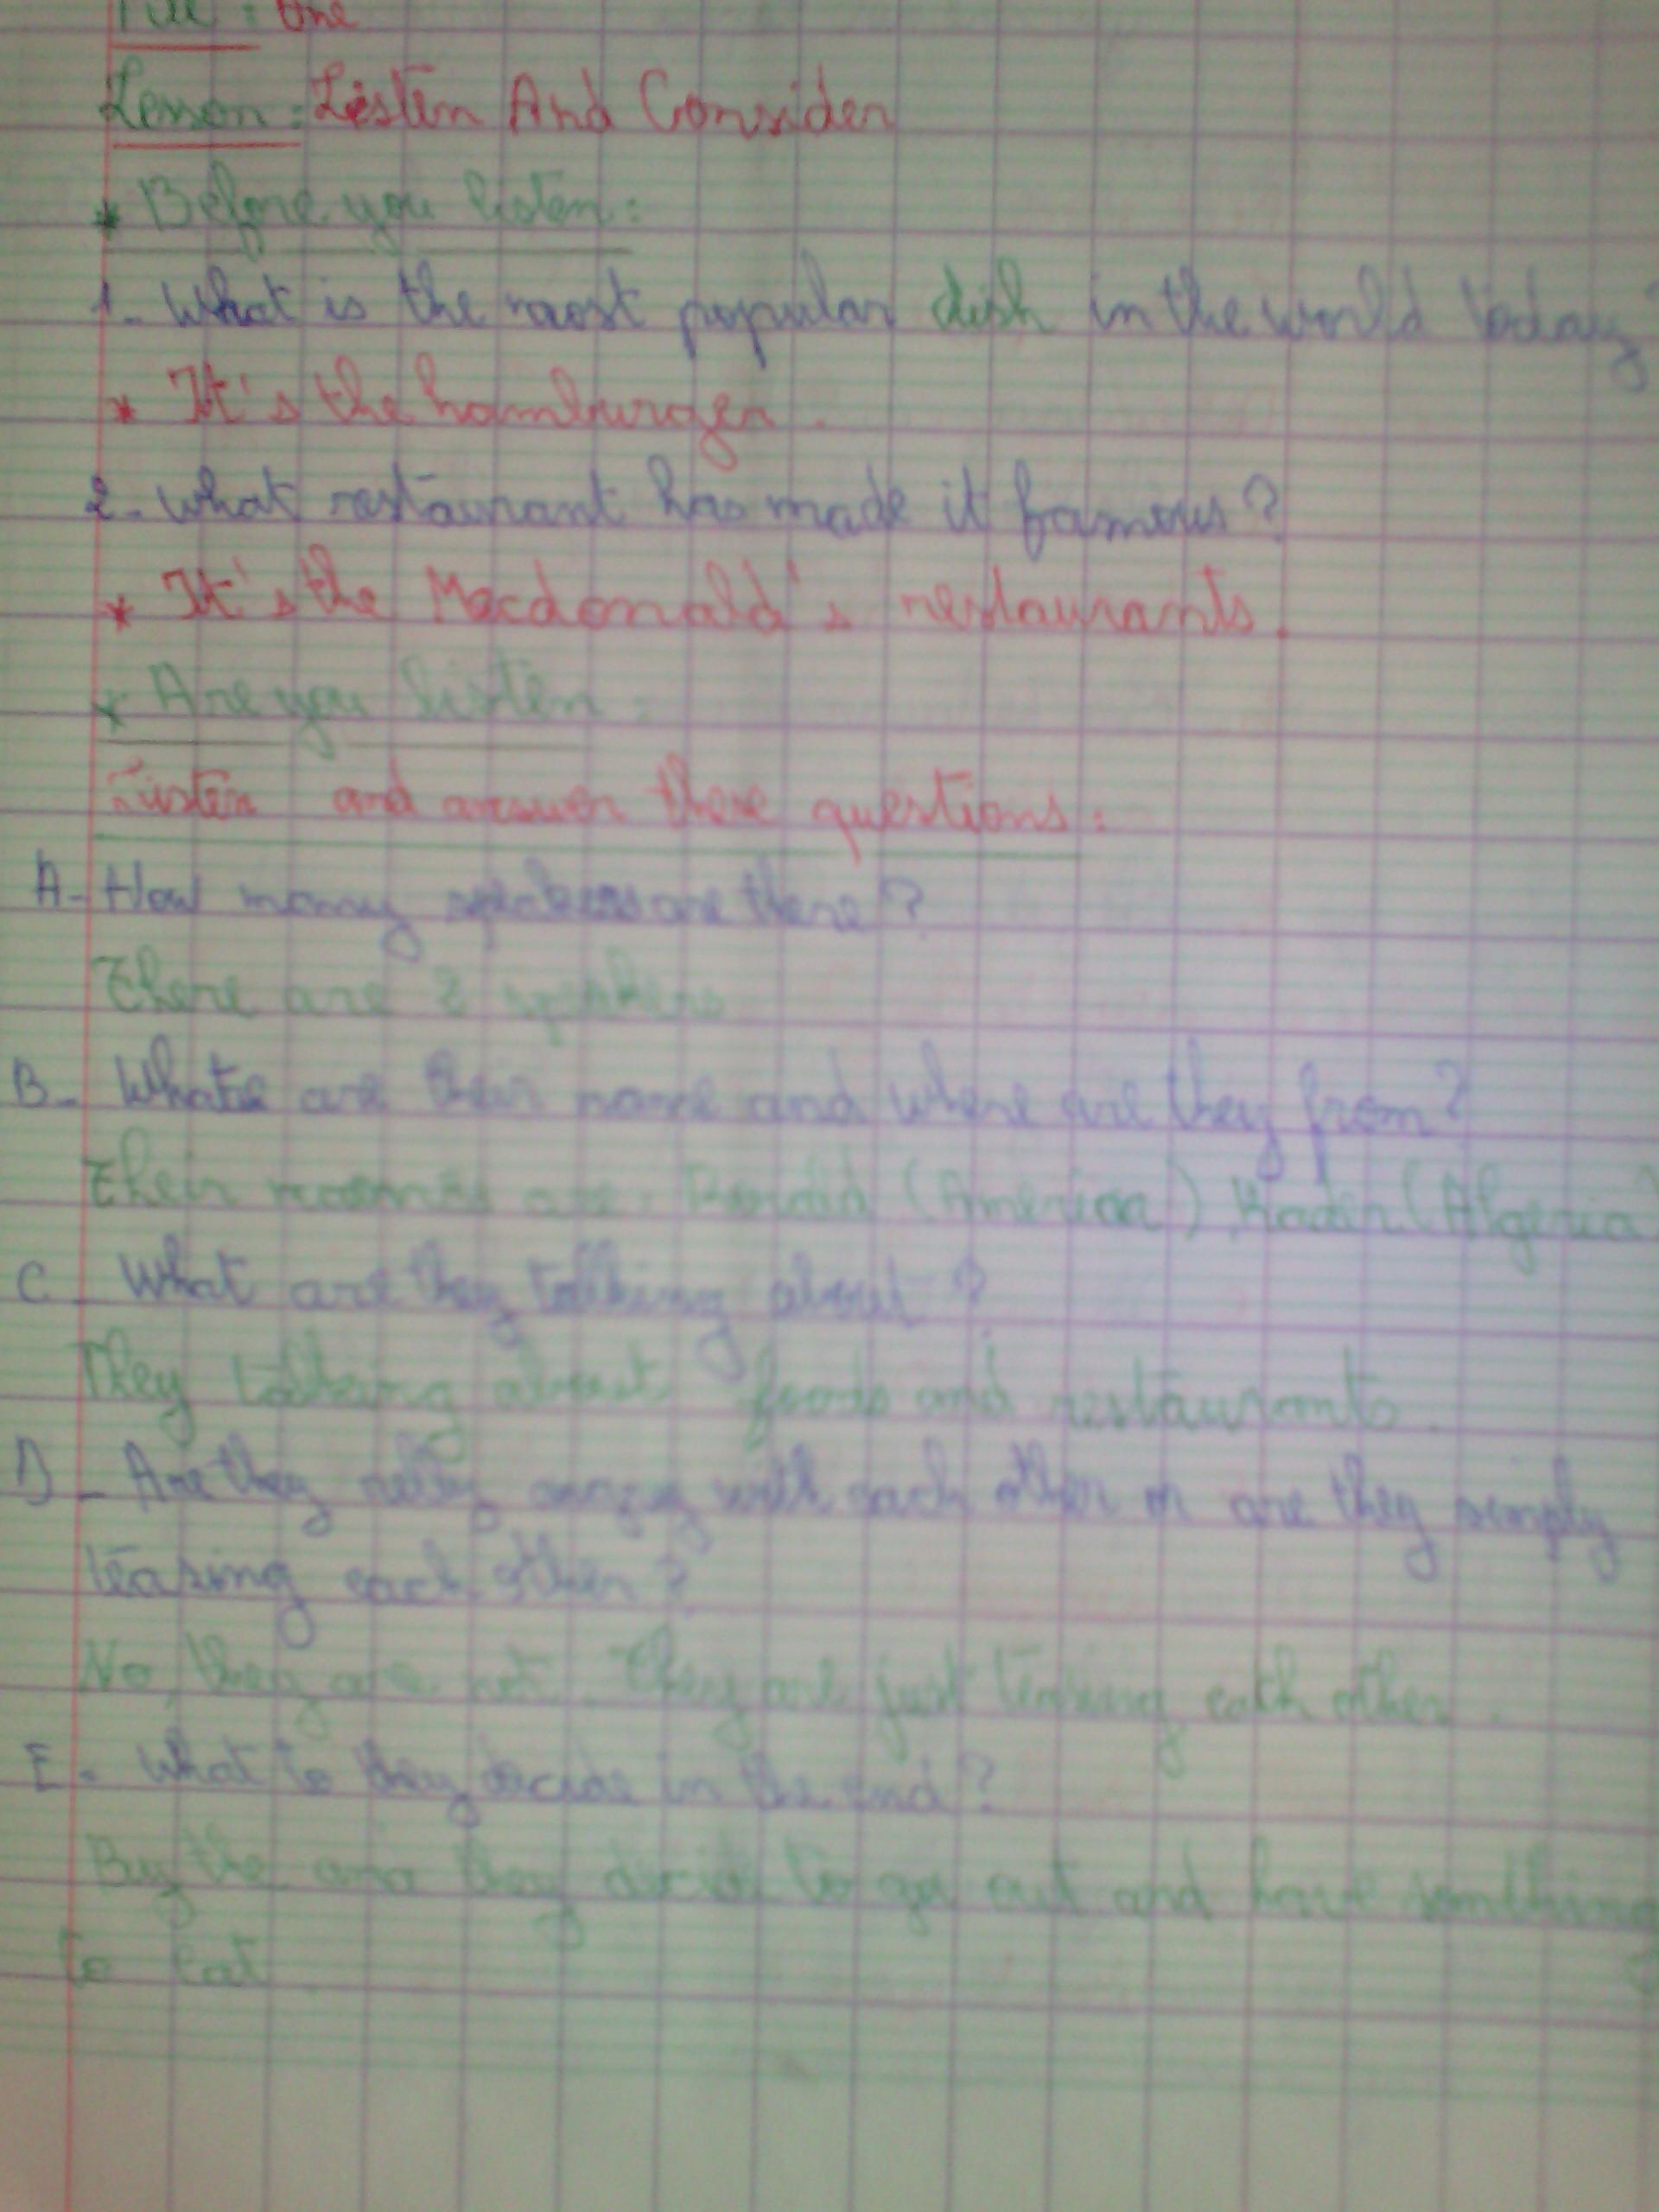 : One
Lesson : Listen And Consider
* Before you listen :
1- What is the most popular dish in the world today?
* It's the hamburger.
2- What restaurant has made it famous?
* It's the Macdonald's restaurants.
* Are you listen :
Listen and answer these questions :
A- How many speakers are there?
There are 2 speakers
B- What are their name and where are they from?
Their names are : (America) Kader (Algeria)
C- What are they talking about?
They talking about foods and restaurants.
D- Are they angry with each other or are they simply
teasing each other?
No, they are not. They are just teasing each other.
E- What to they decide in the end?
By the they decide to go out and have something
to eat